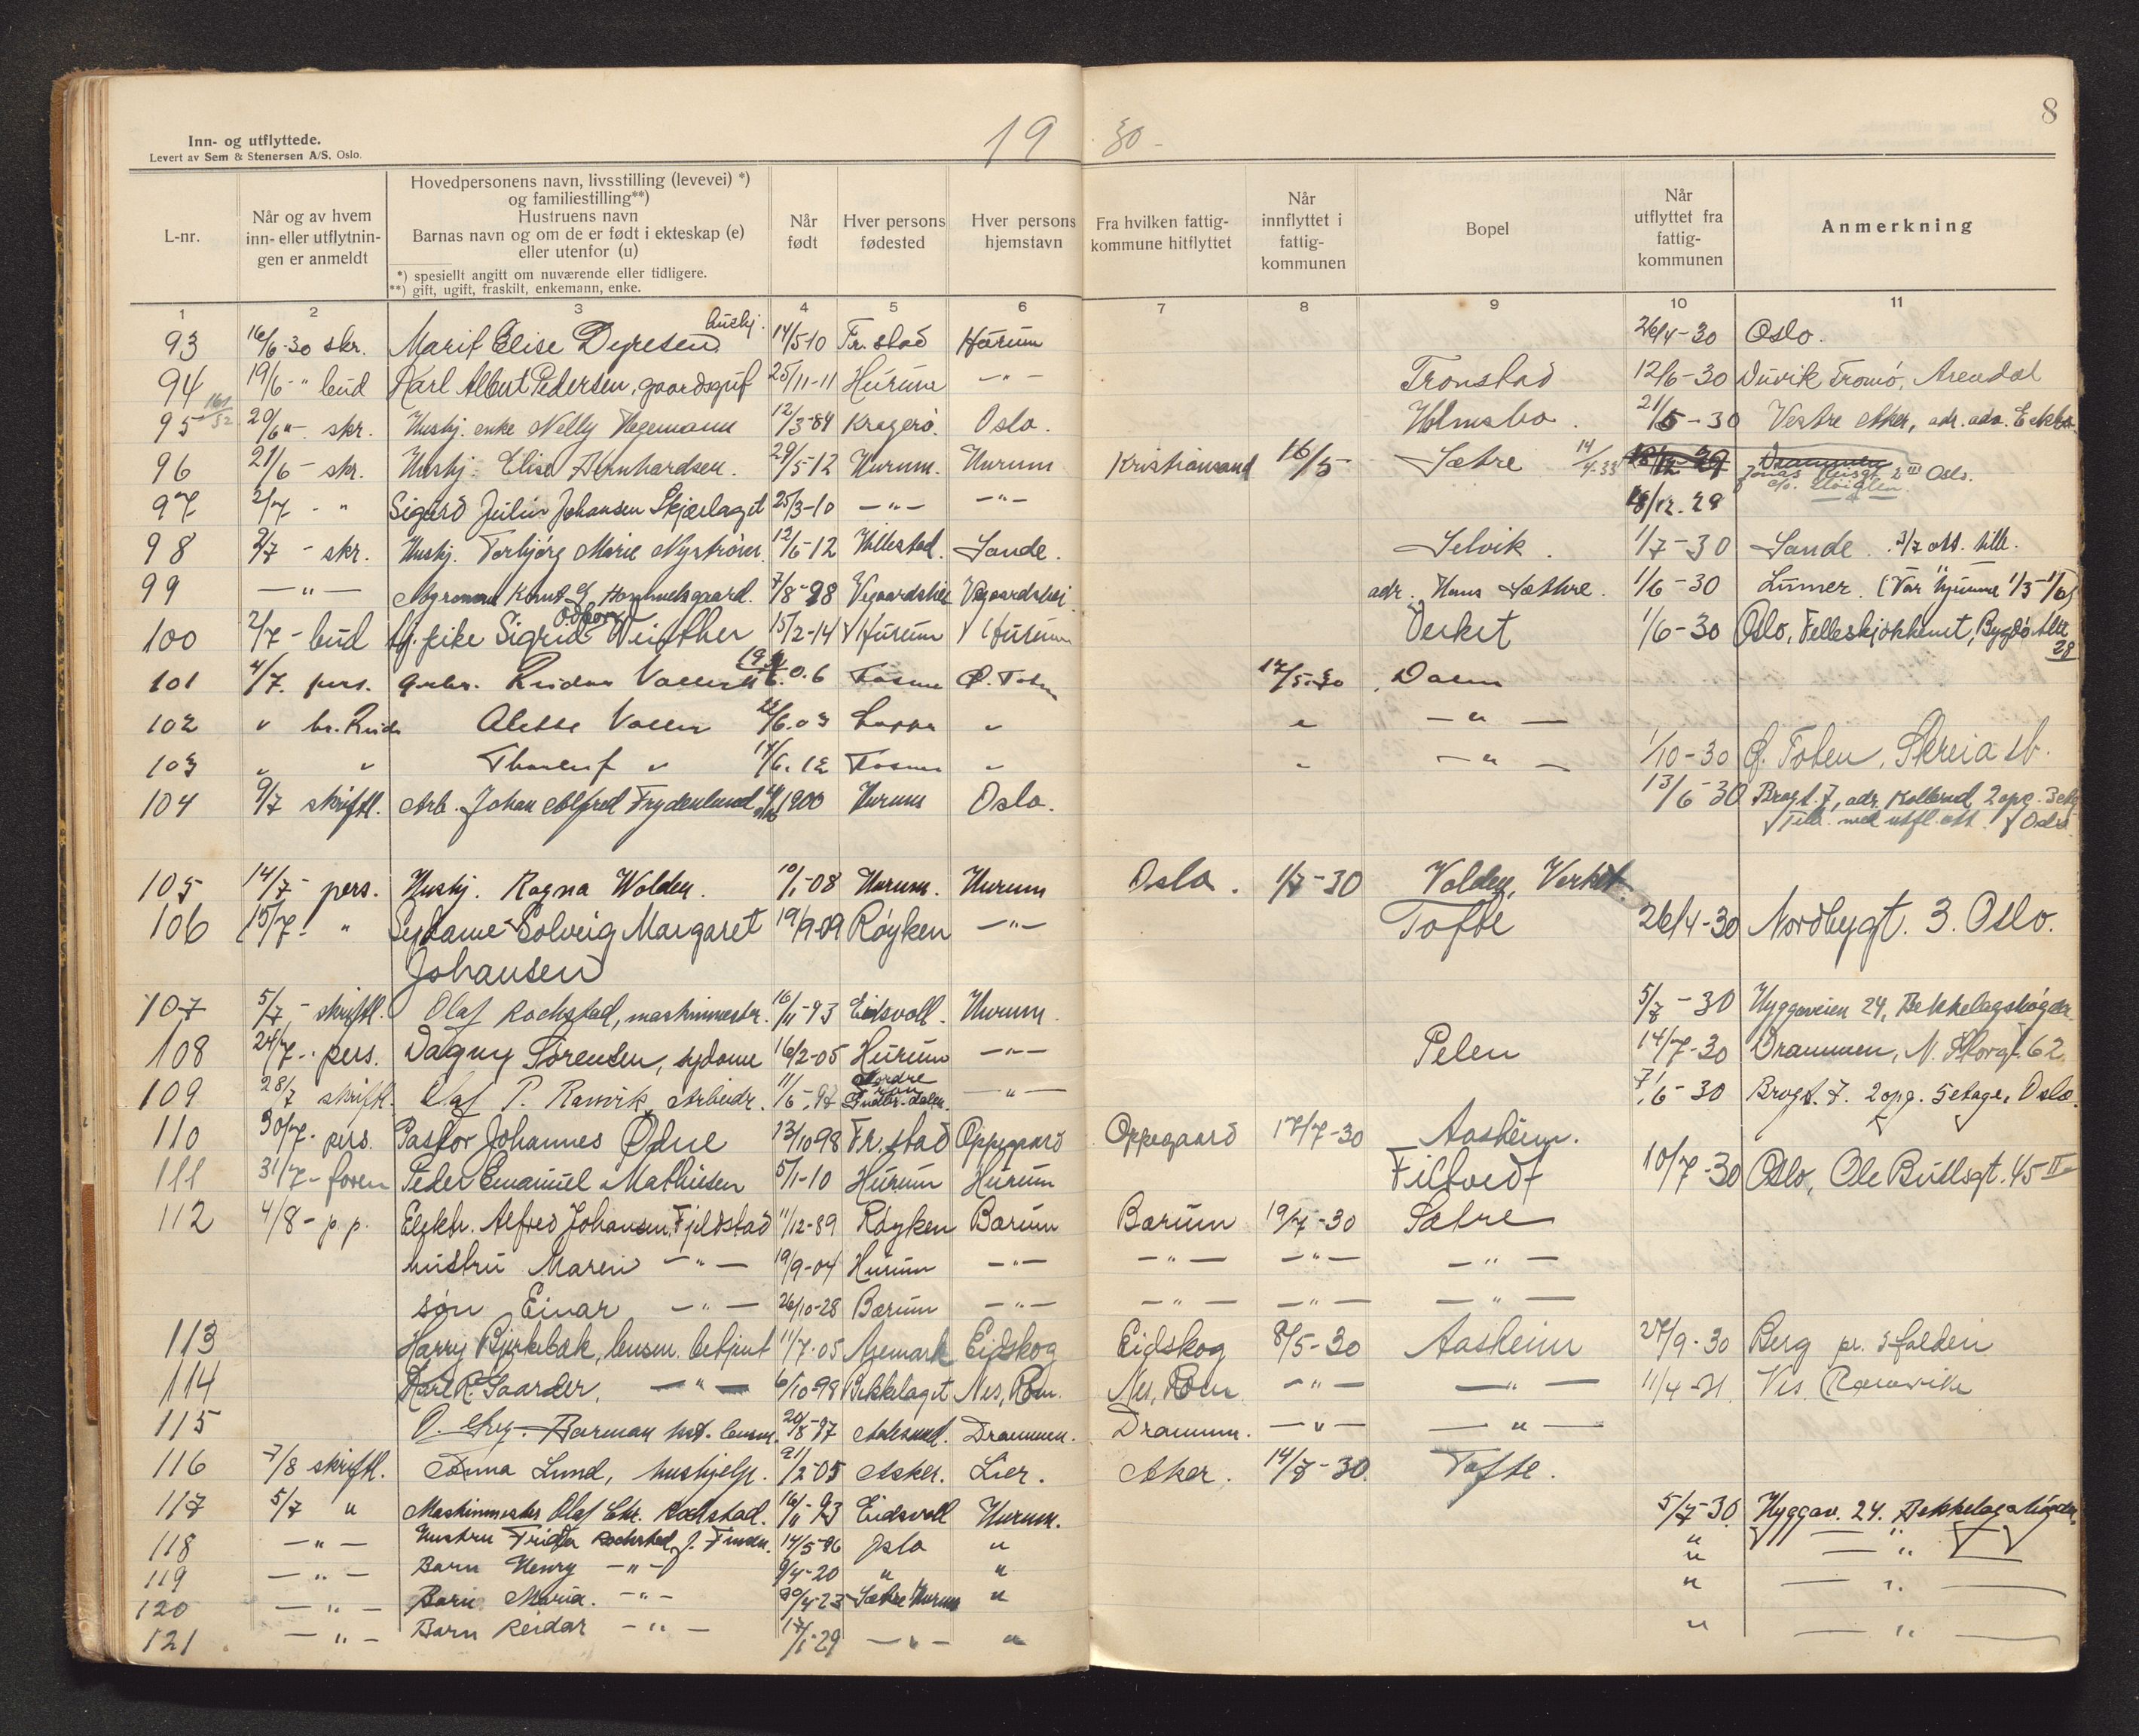 19 30-
8
Inn- og utflyttede.
Levert av Sem & Stenersen A/S. Oslo.
L-nr. Når og av hvem inn- eller utflytningen er anmeldt Hovedpersonens navn, livsstilling (levevei) *) og familiestilling**) Hustruens navn Barnas navn og om de er født i ekteskap (e) eller utenfor (u) Når født Hver persons fødested Hver persons hjemstavn Fra hvilken fattigkommune hitflyttet Når innflyttet i fattigkommunen Bopel Når utflyttet fra fattigkommunen Anmerkning
*) spesiellt angitt om nuværende eller tidligere.
**) gift, ugift, fraskilt, enkemann, enke.
1 2 3 4 5 6 7 8 9 10 11
93 16/6-30 skr. Marit Elise Dyresen hushj. 14/5-10 Fr.stad Hurum 26/4-30 Oslo.
94 19/6-" bud Karl Albert Pedersen, gaardsgut 25/11-11 Hurum -"- Tronstad 12/6-30 Duvik Tromö, Arendal
95 20/6 " skr. Hushj. enke Nelly Hegemann 12/3-84 Kragerö. Oslo. Holmsbo. 21/5-30 Vestre Aker, adr. adv.
96 21/6- skr. Hushj. Elise Bernhardsen. 29/5-12 Hurum. Hurum Kristiansand 16/5 Sætre 14/4-33 Drammen Oslo.
97 2/7 - " Sigurd Julius Johansen Skjærlaget 25/3-10 -"- -"- 18/12.29
98 3/7 - skr. Hushj. Torbjørg Marie Nyström 12/6-12 Hillestad. Sande. Selvik. 1/7-30 Sande. 3/7 att. tilb.
99 -"- Agronom Knut G. 7/8-98 Vegaardshei Vegaardshei adr. Hans Sæthre. 1/6-30 Lunner. (Var hjemme 1/3-1/6)
100 2/7- bud Tj. pike Sigrid Odborg Winther 15/2-14 Hurum Hurum Verket 1/6-30 Oslo, Felleskjøkkenet, Bygdö Alle 28
101 4/7. pers. Reidar 06 17/5.30
102 " Aletta 22/6.03 " " -"-
103 " " " 14/6.12 " " -"- 1/10-30 Ø. Toten, Skreia st.
104 9/7 skriftl. Arb. Johan Alfred Frydenlund 1900 Hurum Oslo. 13/6-30 Brogt. 7, adr. Kollerud, 2 opg. 3 etg
Tilb. med utfl. att. Oslo
105 14/7- pers. Hushj. Ragna Wolden. 10/1-08 Hurum. Hurum Oslo. 1/7-30 Volden, Verket.
106 15/7- " Sydame Solveig Margaret 19/9-09 Røyken -"- Tofte 26/4-30 Nordbygt. 3. Oslo.
Johansen
107 5/7- skriftl. Olaf Rochstad, maskinmester. 16/11-93 Eidsvoll. Hurum. 5/7-30 Hyggaveien 24, Bekkelagshøgda
108 24/7-. pers. Dagny Sörensen, sydame 16/2-05 Hurum -"- Pelen 14/7-30 Drammen, N. Storgt. 62.
109 28/7 skriftl. Olaf P. Ramvik, Arbeidr. 11/6-97 Nordre Fron Gudbr.dalen. -"- 7/6-30 Brogt. 7. 2 opg. 5 etage, Oslo.
110 30/7- pers. Pastor Johannes Ödne 13/10 98 Fr.stad Oppegaard Oppegaard 17/7-30 Aasheim.
111 31/7- foren Peder Emanuel Mathiesen 5/1-10 Hurum Hurum Filtvedt 10/7-30 Oslo, Ole Bullsgt. 45 II
112 4/8- p.p. Elektr. Alfred Johansen Fjeldstad 11/12-89 Røyken Bærum Bærum 19/7-30 Sætre
hustru Maren -"- 19/9-04 Hurum -"- -"- -"- -"-
søn Einar -"- 26/10-28 Bærum -"- -"- -"- -"-
113 Harry Bjerkebæk, lensm. betjent 11/7-05 Aremark Eidskog Eidskog 8/5-30 Aasheim 27/9-30 Berg pr. Halden
114 Karl R. Gaarder, -"- 6/10-98 Bekkelaget Nes, Rom. Nes, Rom. -"- -"- 11/4-31 Ramvik
115 O. Aug. Barman kst. lensm. 20/8-97 Aalesund. Drammen. Drammen. -"- -"-
116 7/8 skriftl. Anna Lund, hushjelp. 9/2-05 Asker. Lier. Aker. 14/7-30. Tofte.
117 5/7 " Maskinmester Olaf Chr. Rochstad. 16/11-93 Eidsvoll Hurum. 5/7-30. Hyggav. 24. Bekkelagshögda
118 -"- Hustru Frida Rochstad f. 14/5-96 Oslo " " -"-
119 -"- Barn Henry -"- 9/4-20 " " " -"-
120 -"- Barn Maria. -"- 30/4-23 Sætre Hurum " " -"-
121 -"- Barn Reidar -"- 17/1-29 -"- " " -"-